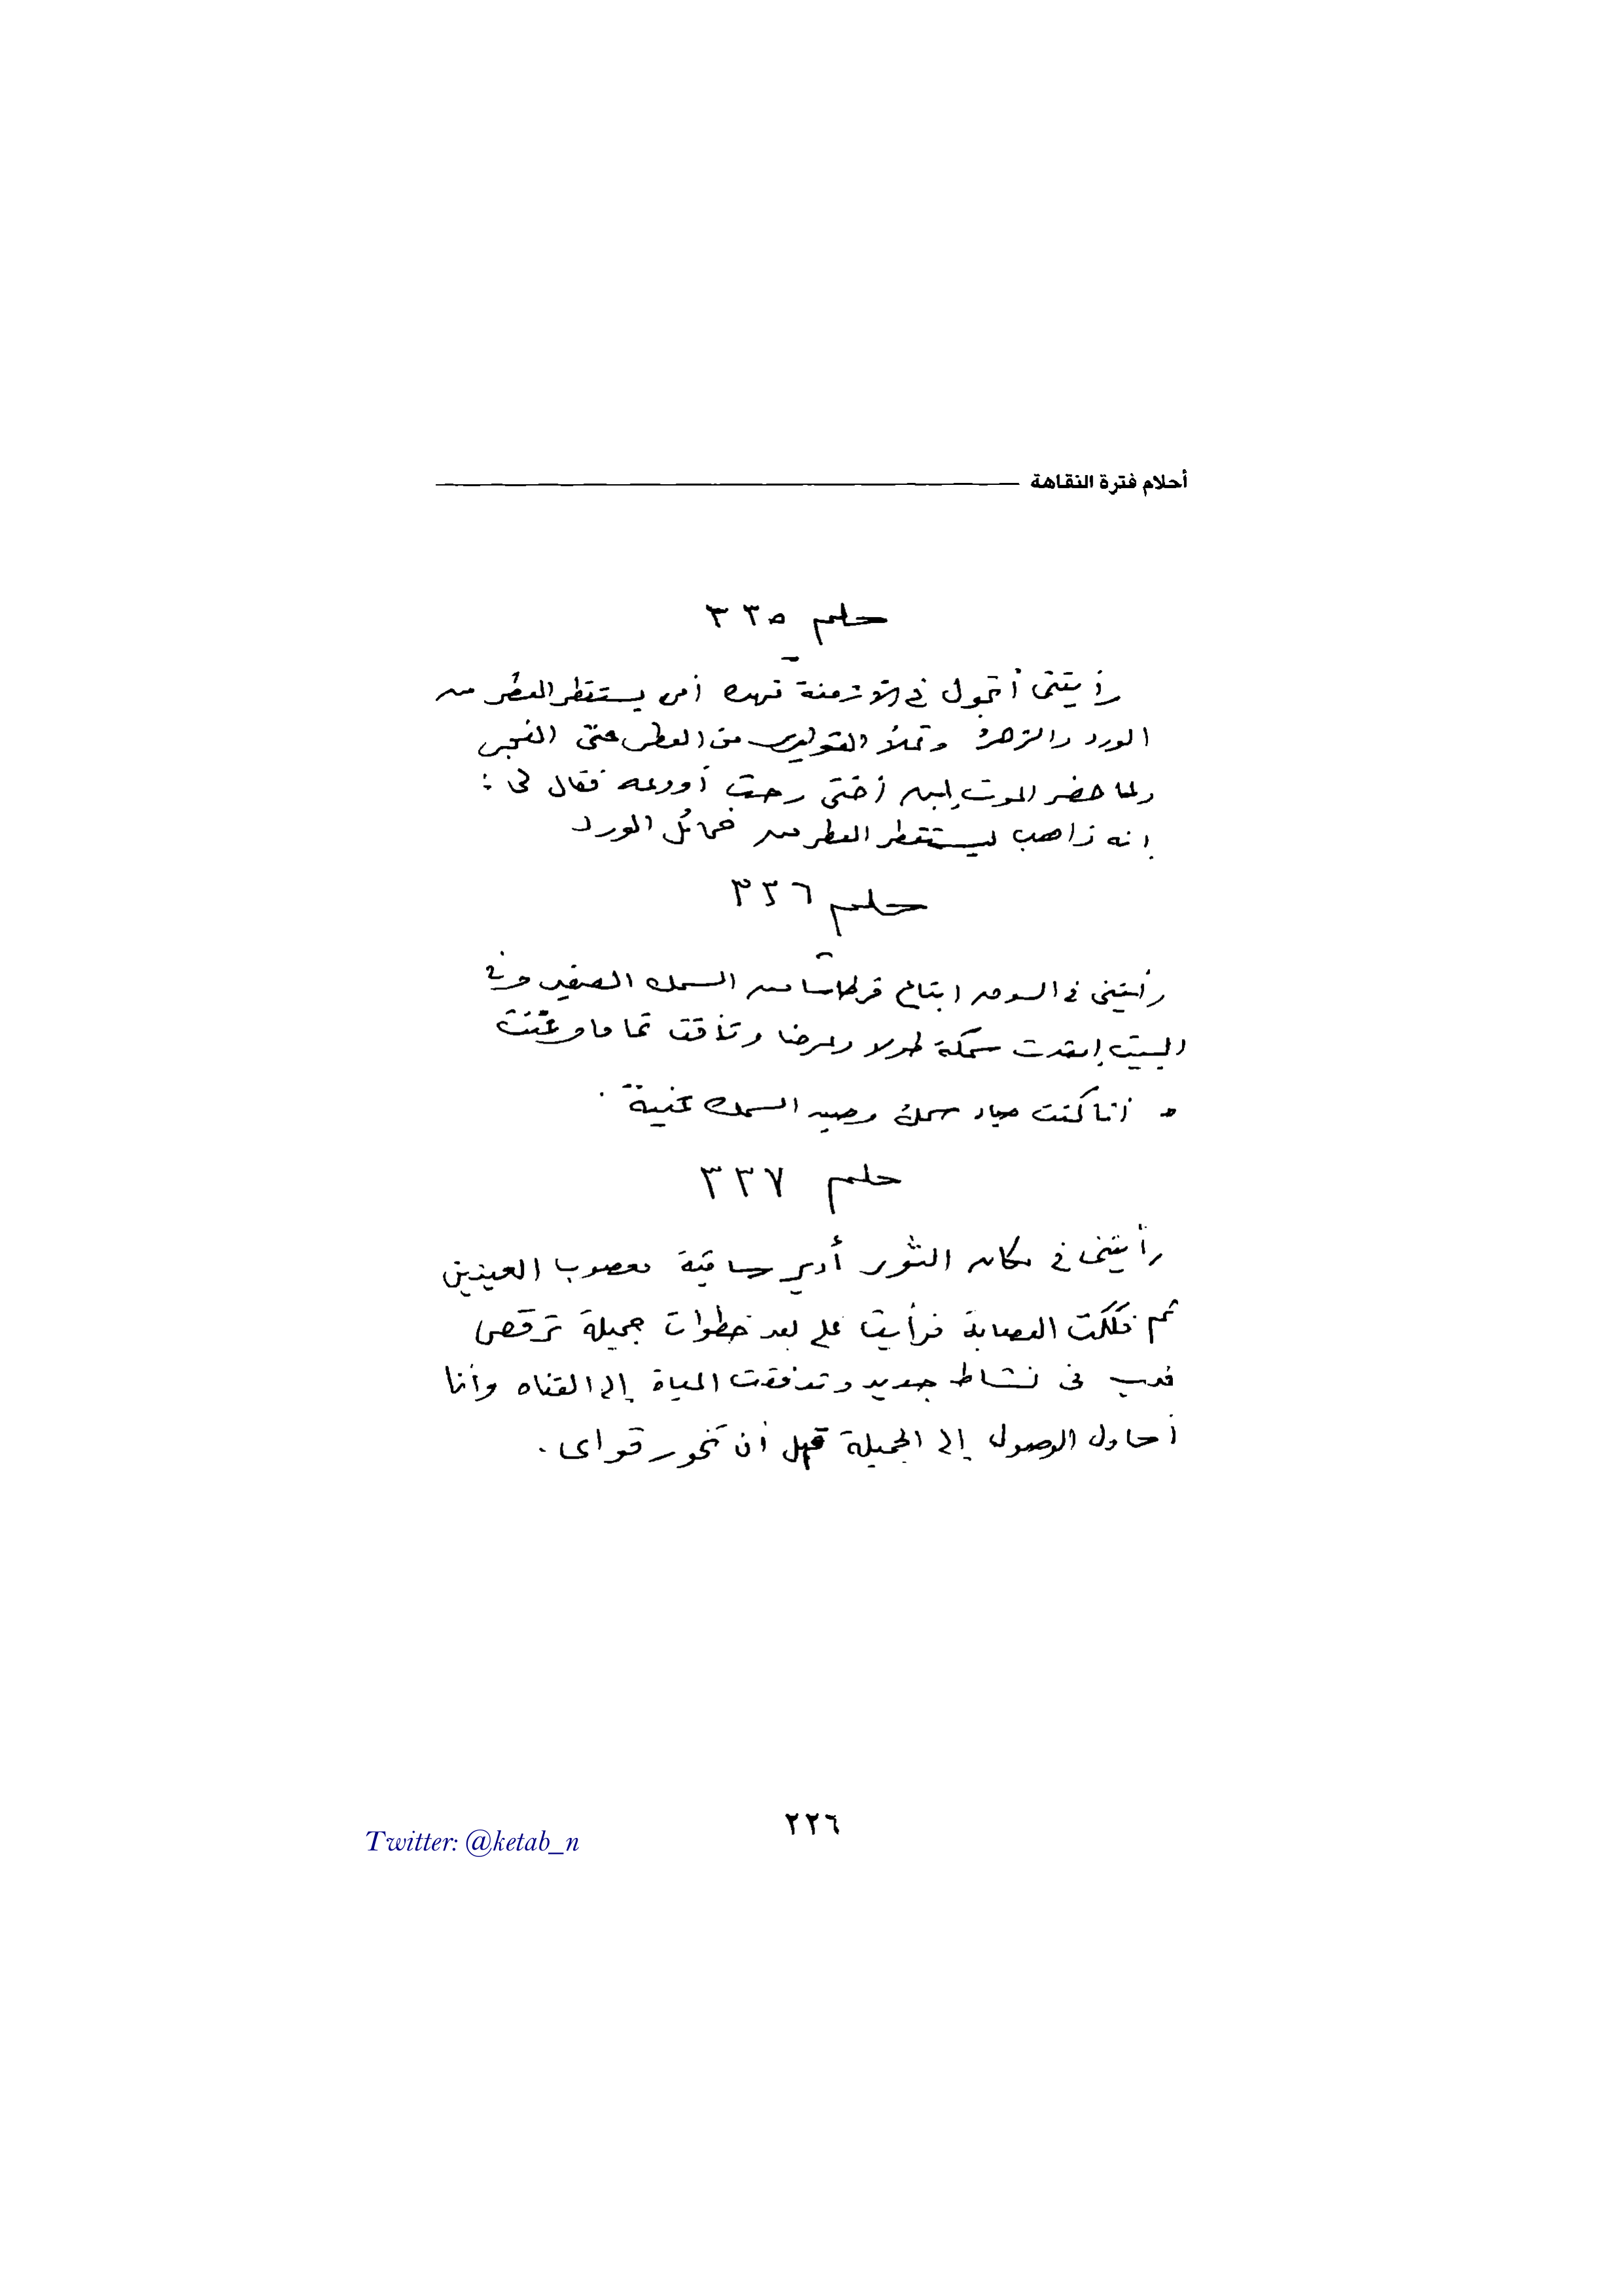 أحلام فترة النقاهة
حلم ٣٣٥
رأيتنى أتجول في الأزمنة فهذه أمى يستقطر العطر من
الورد والزهر وتملأ القوارير من العطر حتى الفجر
ولما حضر الموت لابن أختى رحت أودعه فقال لى :
إنه ذاهب ليستقطر العطر من خمائل الورد
حلم ٣٣٦
رأيتنى في السوق ابتاع قرطاسا من السمك الصغير وفى
البيت إمتدت سمكة طولا وعرضا و تماما
أنا كنت صياد سمك وصيد السمك غنية .
حلم ٣٣٧
رأيتنى في مكان الثور أدير ساقية معصوب العينين
ثم فككت العصابة فرأيت على بعد خطوات جميلة ترقص
فدب فى نشاط جديد وتدفقت المياة إلى القناه وأنا
أحاول الوصول إلى الجميلة قبل أن تخور قواى .
٢٢٦
Twitter: @ketab_n